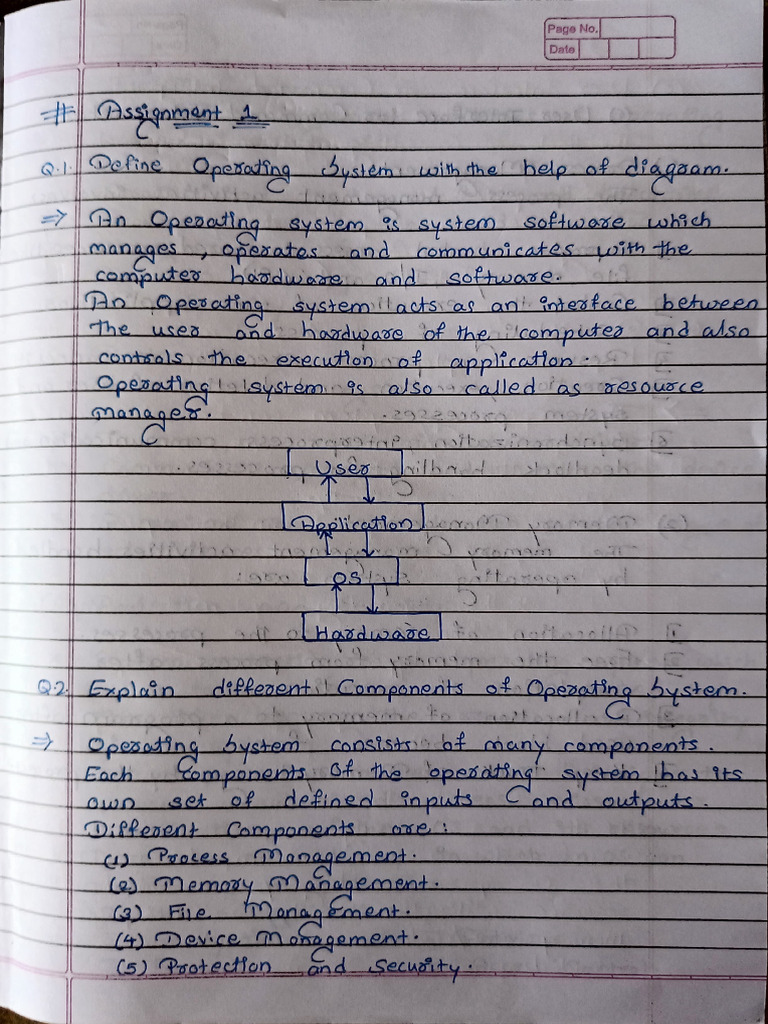 Page No.
Date
# Assignment 1
Q.1. Define Operating System with the help of diagram.
⇒ An Operating system is system software which
manages, operates and communicates with the
computer hardware and software.
An Operating system acts as an interface between
the user and hardware of the computer and also
controls the execution of application.
Operating system is also called as resource
manager.
User
Application
OS
Hardware
Q.2. Explain different Components of Operating System.
⇒ Operating System consists of many components.
Each Components Of the operating system has its
own set of defined inputs and outputs.
Different Components are:
(1) Process Management.
(2) Memory Management.
(3) File Management.
(4) Device Management.
(5) Protection and Security.